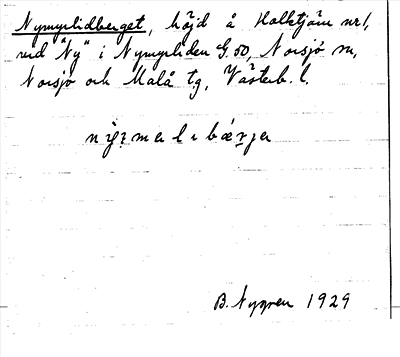 Nymyrlidberget, höjd å Holktjärn nr 1,
vid "Ny" i Nymyrliden G. 50, Norsjö sn,
Norsjö och Malå tg, Västerb. l.
B. Nygren 1929